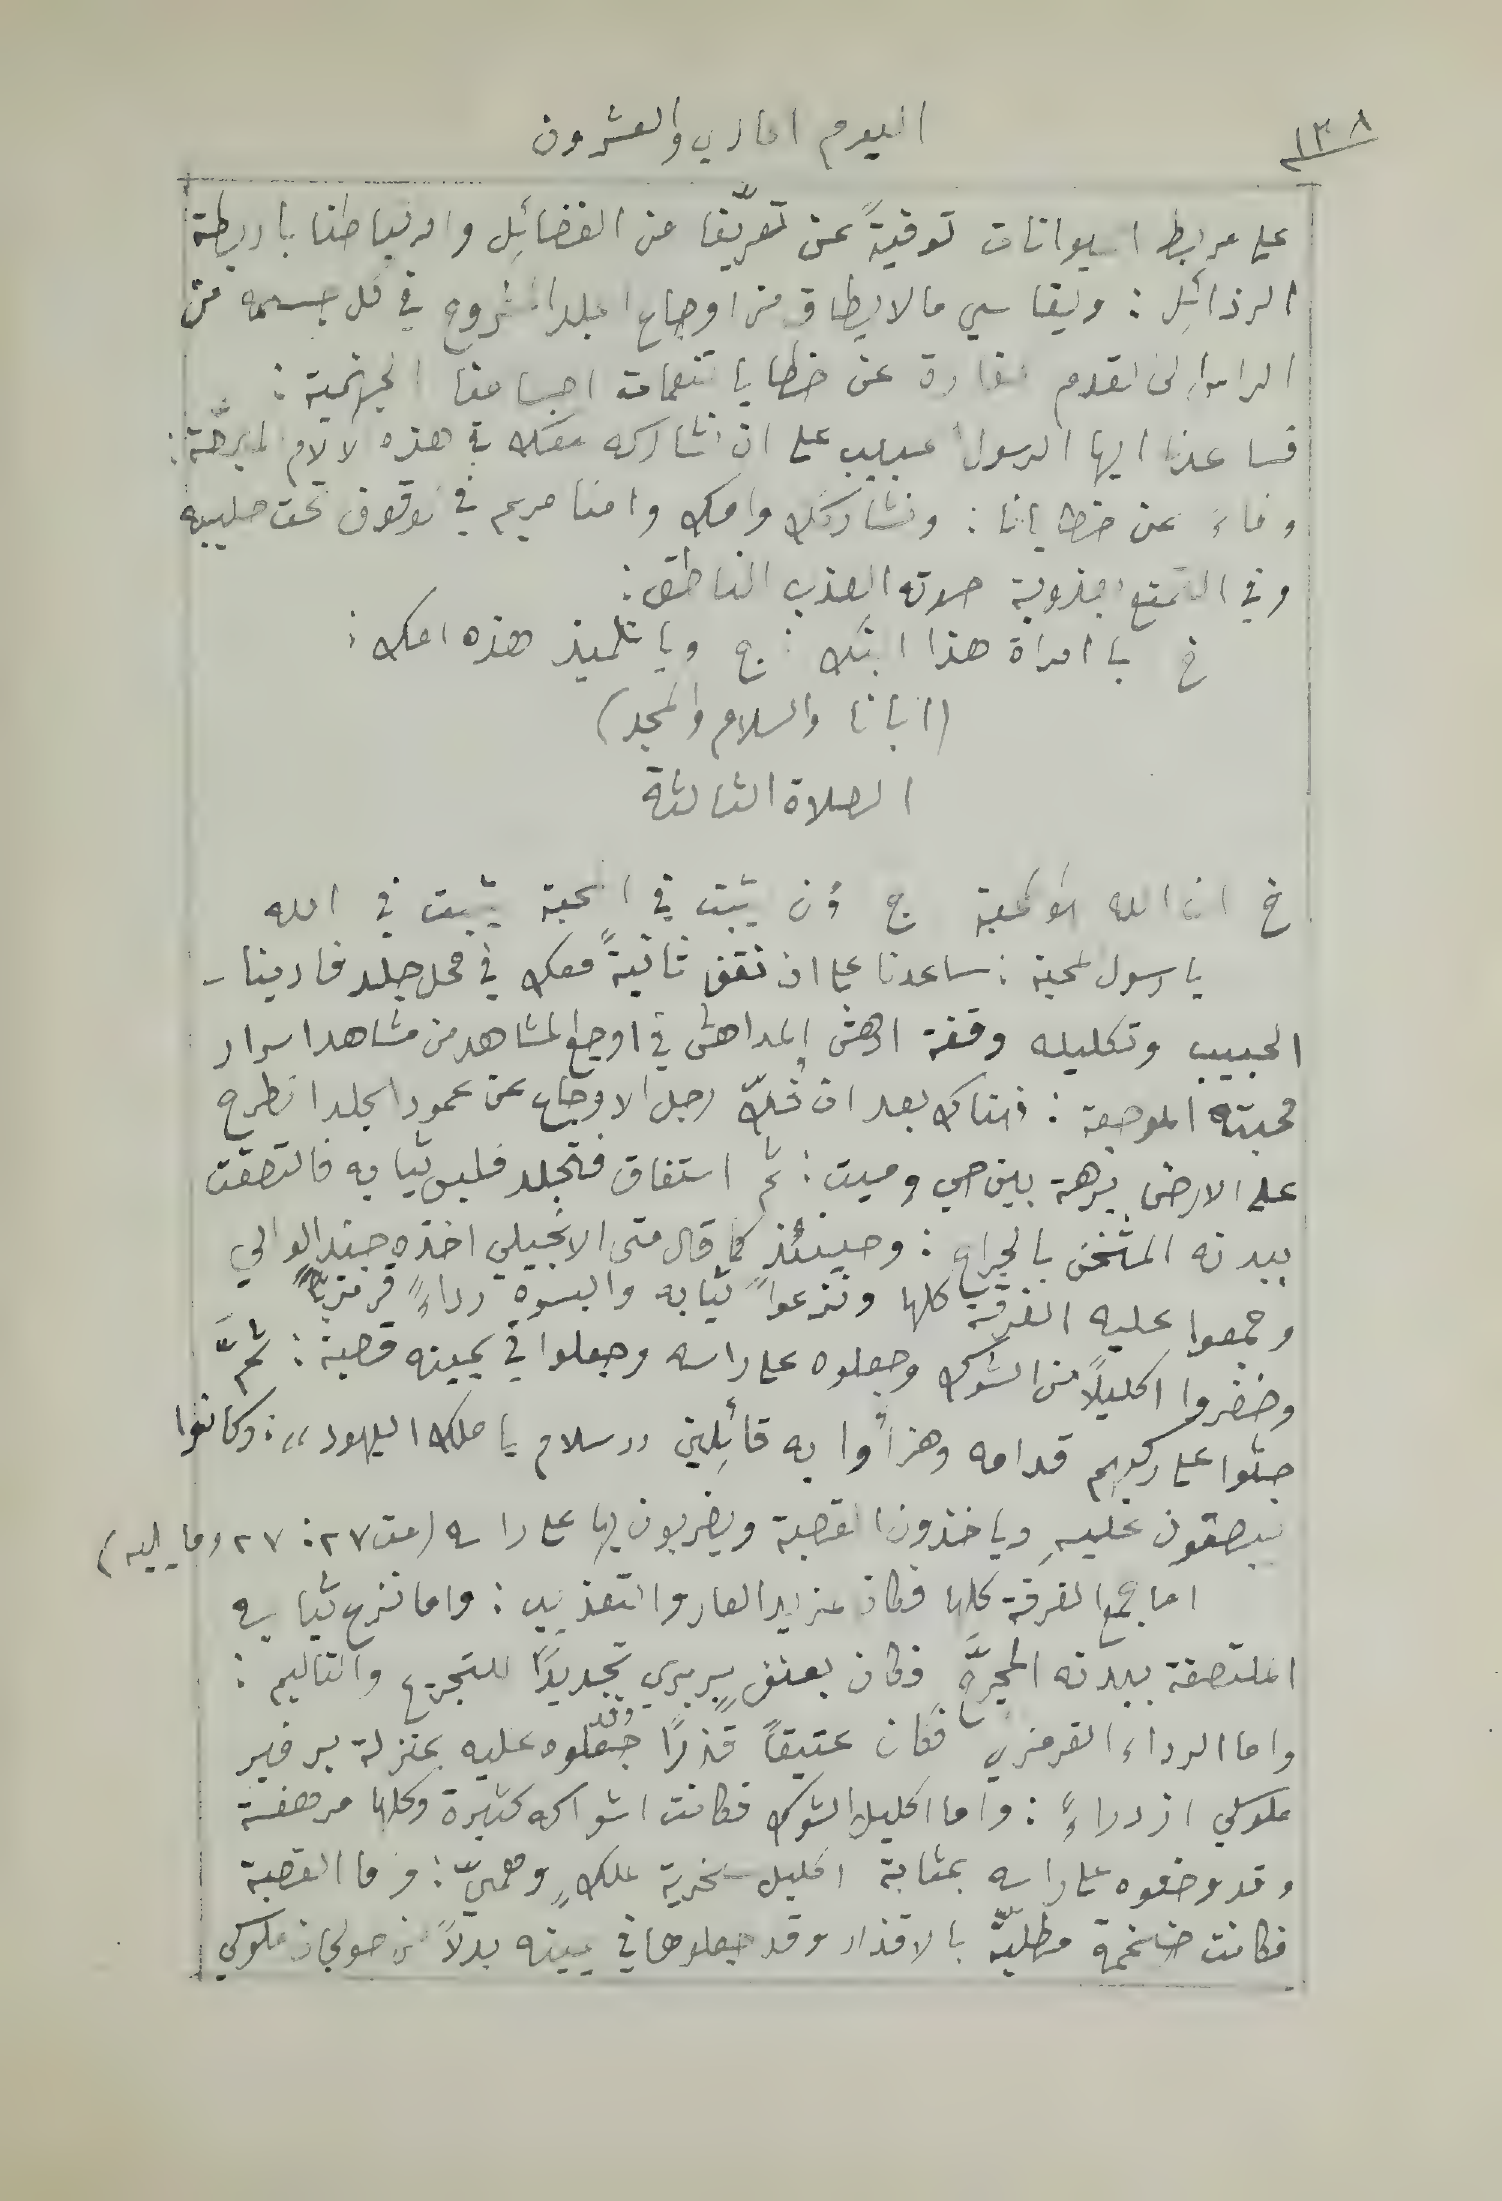 ١٣٨
اليوم الحادي والعشرون
على مربط الحيوانات توقيةً عن تعرّينا من الفضائِل وارتباطنا باربطة
الرذائِل : وليقاسي مالا يطاق من اوجاع الجلد المبروح في كل جسمه من
الراس الى القدم كفارة عن خطايا تنعمات اجسامنا الجهنمية :
فساعدنا ايها الرسول الحبيب على ان نشاركه معك في هذه الالام المبرحّة :
وفاءً عن خطايانا : ونشاركك وامك وامنا مريم في الوقوف تحت صليبه
وفي التمتع بعذوبة صوته العذب الناطق :
خ يا امراة هذا ابنك : ج ويا تلميذ هذه امك :
(ابانا والسلام والمجد)
الصلاة الثالثة
خ ان الله هو المحبة ج ومن يثبت في المحبة يثبت في الله
يا رسول المحبة : ساعدنا على ان نقف ثانيةً معك في محل جلد فادينا
الحبيب وتكليله وقفة ادهش المداهش في اوجع المشاهد من مشاهد اسرار
محبته الموجعة : فهناك بعد ان فُكّ رجل الاوجاع عن عمود الجلد انطرح
على الارض برهة بين حي وميت : ثم استفاق فتجلد فلبس ثيابه فالتصقت
ببدنه المثخن بالجراح : وحينئذٍ كما قال متى الانجيلي اخذه جند الوالي
وجمعوا عليه الفرقة كلها ونزعوا ثيابه والبسوه رداءً قرمزيّاً
وضفروا اكليلاً من الشوك وجعلوه على راسه وجعلوا في يمينه قصبة : ثمَّ
جثوا على ركبهم قدامه وهزأوا به قائِلين ,, سلام يا ملك اليهود ,, : وكانوا
يبصقون عليهِ وياخذون القصبة ويضربون بها على راسه (مت ٢٧ : ٢٧ وما يليه)
اما جمع الفرقة كلها فكان لمزيد العار والتعذيب : واما نزع ثيابه
الملتصقة ببدنه المجرَّح فكان بعنفٍ بربري تجديدًا للتجريح والتاليم :
واما الرداء القرمزي فكان عتيقاً قذرًا وقد جعلوه عليه بمنزلة برفير
ملوكي ازدراءً : واما اكليل الشوك فكانت اشواكه كثيرة وكلها مرهفة
وقد وضعوه على راسه بمثابة اكليل سخرية لملكٍ وهميّ : واما القصبة
فكانت ضخمة مطليّة بالاقذار وقد جعلوها في يمينه بدلاً من صولجان ملوكي